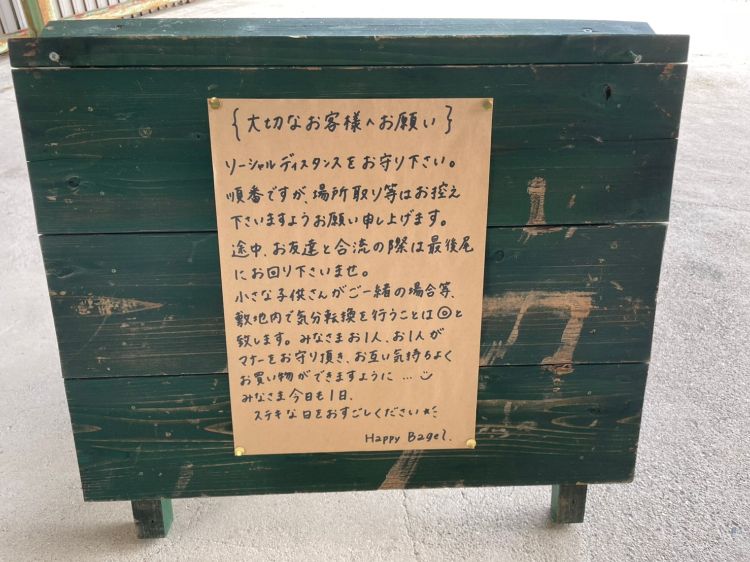 {大切なお客様へお願い}
ソーシャルディスタンスをお守り下さい。
順番ですが、場所取り等はお控え
下さいますようお願い申し上げます。
途中、お友達と合流の際は最後尾
にお回り下さいませ。
小さな子供さんがご一緒の場合等、
敷地内で気分転換を行うことは◎と
致します。みなさまお1人、お1人が
マナーをお守り頂き、お互い気持ちよく
お買い物ができますように…
みなさま今日も1日、
ステキな日をおすごしください★
Happy Bagel.